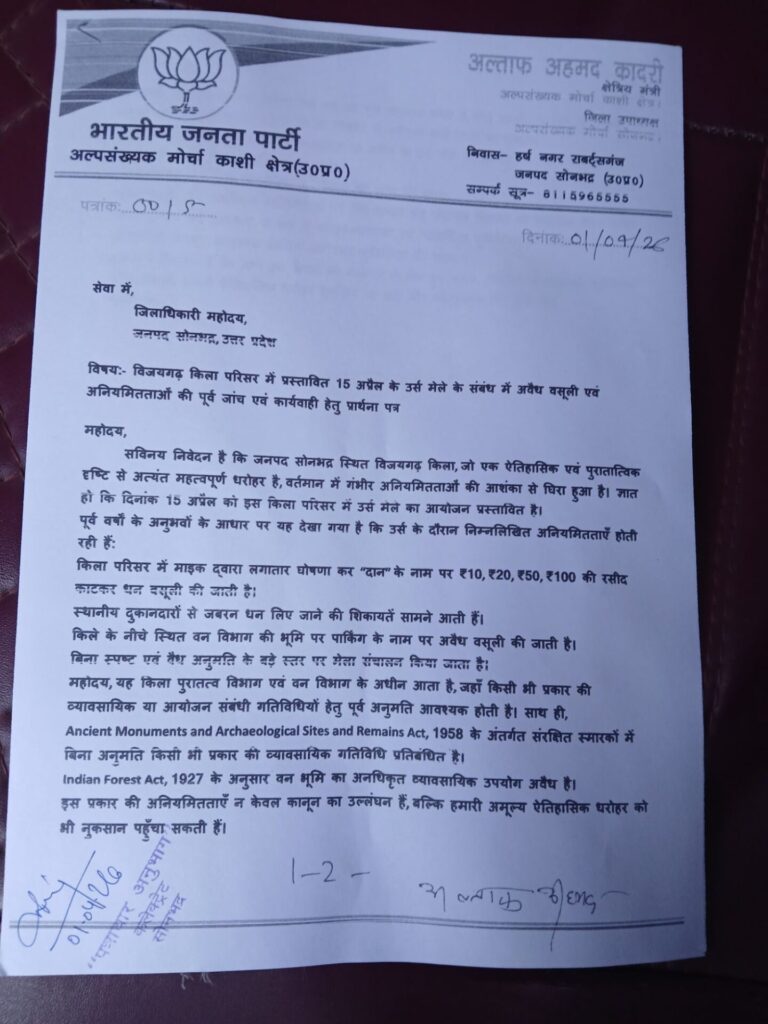 भारतीय जनता पार्टी
अल्पसंख्यक मोर्चा काशी क्षेत्र(उ०प्र०)
अल्ताफ अहमद कादरी
क्षेत्रिय मंत्री
अल्पसंख्यक मोर्चा काशी क्षेत्र।
जिला उपाध्यक्ष
अल्पसंख्यक मोर्चा सोनभद्र।
निवास– हर्ष नगर राबर्ट्सगंज
जनपद सोनभद्र (उ०प्र०)
सम्पर्क सूत्र– 8115965555
पत्रांक:
दिनांक:
सेवा में,
जिलाधिकारी महोदय,
जनपद सोनभद्र, उत्तर प्रदेश
विषय:- विजयगढ़ किला परिसर में प्रस्तावित 15 अप्रैल के उर्स मेले के संबंध में अवैध वसूली एवं
अनियमितताओं की पूर्व जांच एवं कार्यवाही हेतु प्रार्थना पत्र
महोदय,
सविनय निवेदन है कि जनपद सोनभद्र स्थित विजयगढ़ किला, जो एक ऐतिहासिक एवं पुरातात्विक
दृष्टि से अत्यंत महत्वपूर्ण धरोहर है, वर्तमान में गंभीर अनियमितताओं की आशंका से घिरा हुआ है। ज्ञात
हो कि दिनांक 15 अप्रैल को इस किला परिसर में उर्स मेला का आयोजन प्रस्तावित है।
पूर्व वर्षों के अनुभवों के आधार पर यह देखा गया है कि उर्स के दौरान निम्नलिखित अनियमितताएँ होती
रही हैं:
किला परिसर में माइक द्वारा लगातार घोषणा कर "दान" के नाम पर ₹10, ₹20, ₹50, ₹100 की रसीद
काटकर धन वसूली की जाती है।
स्थानीय दुकानदारों से जबरन धन लिए जाने की शिकायतें सामने आती हैं।
किले के नीचे स्थित वन विभाग की भूमि पर पार्किंग के नाम पर अवैध वसूली की जाती है।
बिना स्पष्ट एवं वैध अनुमति के बड़े स्तर पर मेला संचालन किया जाता है।
महोदय, यह किला पुरातत्व विभाग एवं वन विभाग के अधीन आता है, जहाँ किसी भी प्रकार की
व्यावसायिक या आयोजन संबंधी गतिविधियों हेतु पूर्व अनुमति आवश्यक होती है। साथ ही,
Ancient Monuments and Archaeological Sites and Remains Act, 1958 के अंतर्गत संरक्षित स्मारकों में
बिना अनुमति किसी भी प्रकार की व्यावसायिक गतिविधि प्रतिबंधित है।
Indian Forest Act, 1927 के अनुसार वन भूमि का अनधिकृत व्यावसायिक उपयोग अवैध है।
इस प्रकार की अनियमितताएँ न केवल कानून का उल्लंघन हैं, बल्कि हमारी अमूल्य ऐतिहासिक धरोहर को
भी नुकसान पहुँचा सकती हैं।
1-2-
01.04.26
"पत्राचार अनुभाग"
कलेक्ट्रेट
सोनभद्र